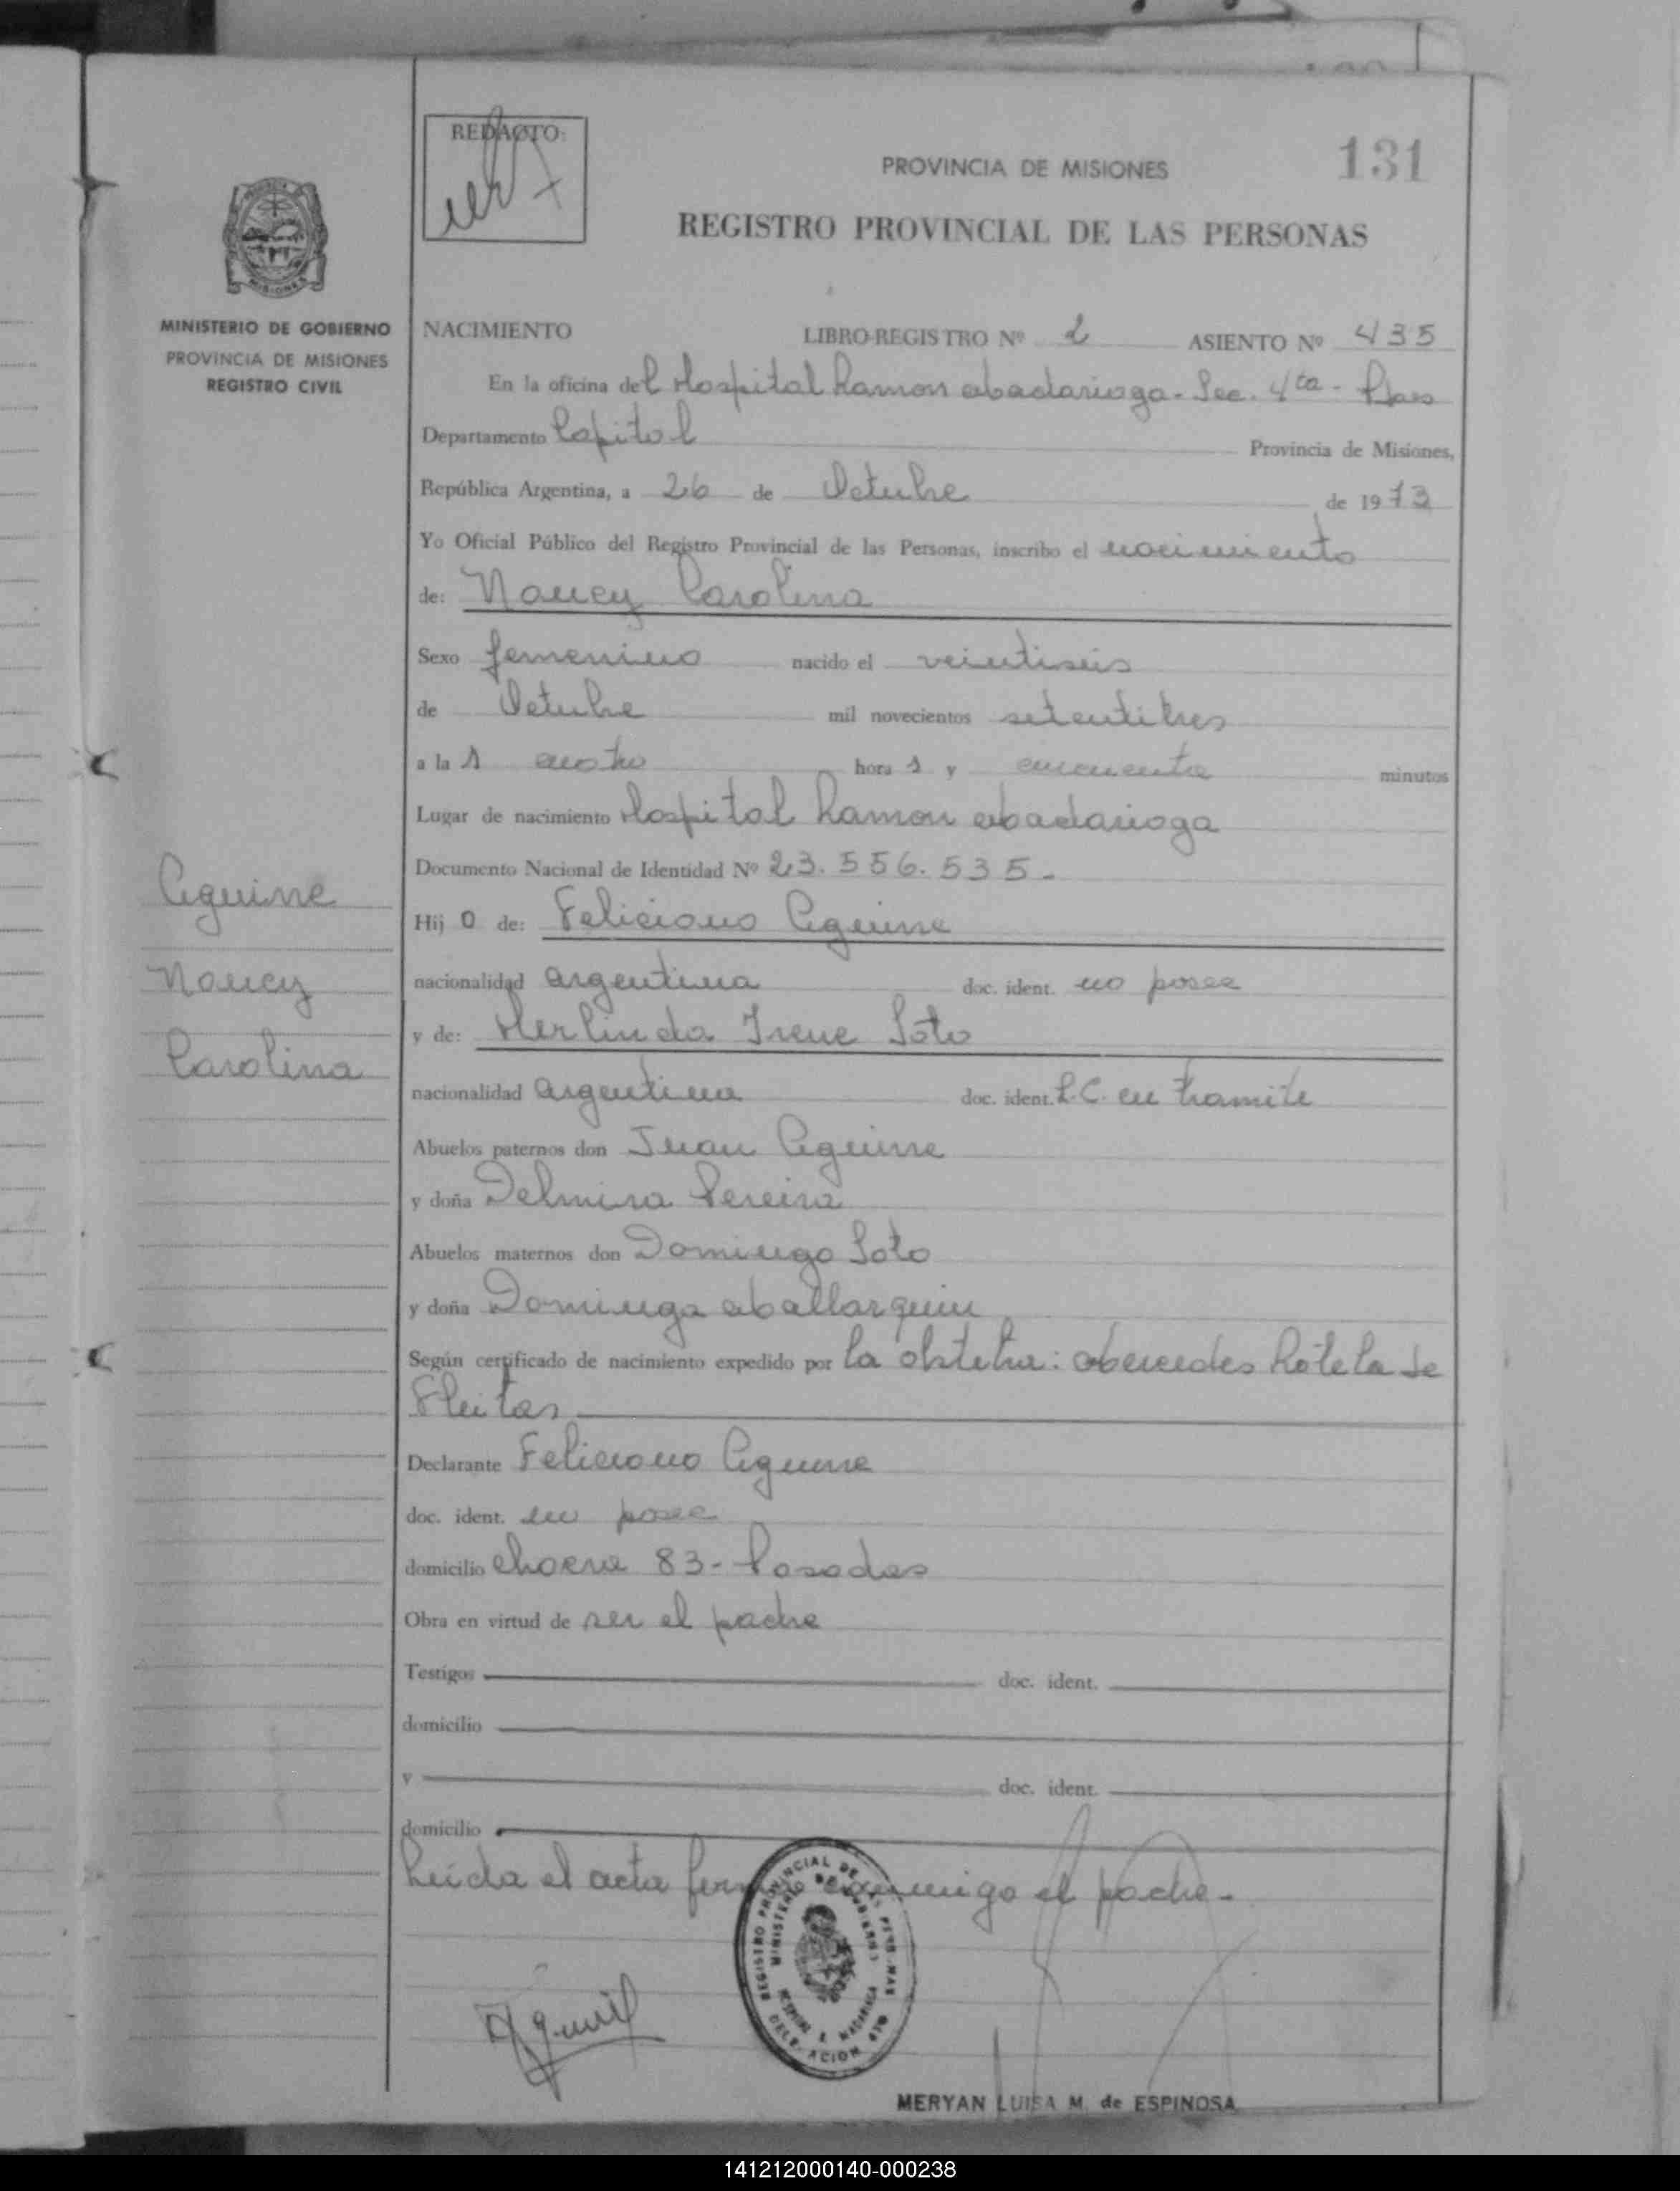 REDACTO:
PROVINCIA DE MISIONES
131
REGISTRO PROVINCIAL DE LAS PERSONAS
MISIONES
MINISTERIO DE GOBIERNO
PROVINCIA DE MISIONES
REGISTRO CIVIL
NACIMIENTO LIBRO-REGISTRO Nº 2 ASIENTO Nº 435
En la oficina del Hospital Ramon Madariaga - Sec. 4ta - Pdas
Departamento Capital Provincia de Misiones,
República Argentina, a 26 de Octubre de 1973
Yo Oficial Público del Registro Provincial de las Personas, inscribo el nacimiento
de: Nancy Carolina
Sexo femenino nacido el veintiseis
de Octubre mil novecientos setentitres
a la s cuatro hora s y cincuenta minutos
Lugar de nacimiento Hospital Ramon Madariaga
Documento Nacional de Identidad Nº 23.556.535.-
Aguirre
Nancy
Carolina
Hij o de: Feliciano Aguirre
nacionalidad argentina doc. ident. no posee
y de: Herlinda Irene Soto
nacionalidad argentina doc. ident. L.C. en tramite
Abuelos paternos don Juan Aguirre
y doña Delmira Pereira
Abuelos maternos don Domingo Soto
y doña Dominga Mallarquin
Según certificado de nacimiento expedido por la obstetra: Mercedes Rotela de
Fleitas
Declarante Feliciano Aguirre
doc. ident. no posee
domicilio Chacra 83 - Posadas
Obra en virtud de ser el padre
Testigos doc. ident.
domicilio
y doc. ident.
domicilio
Leida el acta firma conmigo el padre.-
REGISTRO PROVINCIAL DE LAS PERSONAS
MINISTERIO DE GOBIERNO
HOSPITAL R. MADARIAGA
DELEGACION 4TO
MERYAN LUISA M. de ESPINOSA
141212000140-000238